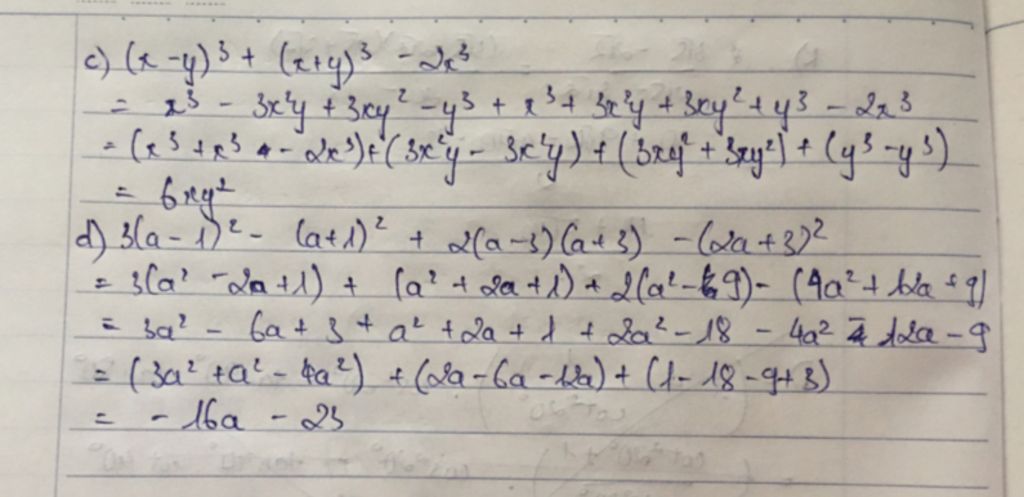 c) (x - y)³ + (x+y)³ - 2x³
= x³ - 3x²y + 3xy² - y³ + x³ + 3x²y + 3xy² + y³ - 2x³
= (x³ + x³ - 2x³) + (3x²y - 3x²y) + (3xy² + 3xy²) + (y³ - y³)
= 6xy²
d) 3(a - 1)² - (a+1)² + 2(a-3)(a+3) - (2a+3)²
= 3(a² - 2a + 1) + (a² + 2a + 1) + 2(a² - 9) - (4a² + 12a + 9)
= 3a² - 6a + 3 + a² + 2a + 1 + 2a² - 18 - 4a² - 12a - 9
= (3a² + a² - 4a²) + (2a - 6a - 12a) + (1 - 18 - 9 + 3)
= - 16a - 23